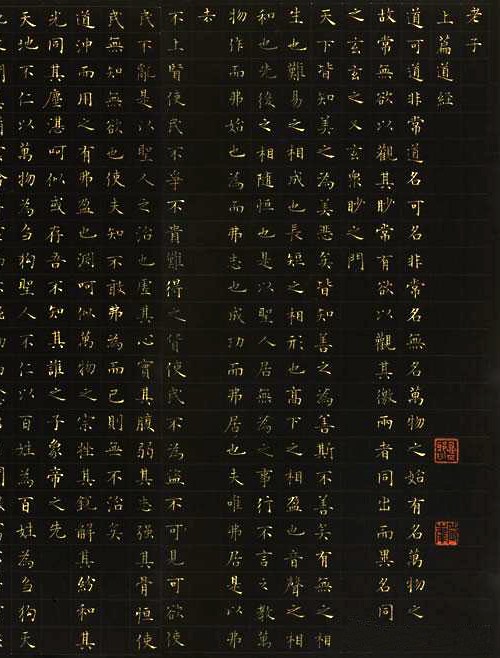 老子
上篇道經
道可道非常道名可名非常名無名萬物之始有名萬物之
故常無欲以觀其眇常有欲以觀其徼兩者同出而異名同
之玄玄之又玄眾眇之門
天下皆知美之為美惡矣皆知善之為善斯不善矣有無之相
生也難易之相成也長短之相形也高下之相盈也音聲之相
和也先後之相隨恒也是以聖人居無為之事行不言之教萬
物作而弗始也為而弗志也成功而弗居也夫唯弗居是以弗
去
不上賢使民不爭不貴難得之貨使民不為盜不可見可欲使
民不亂是以聖人之治也虛其心實其腹弱其志強其骨恒使
民無知無欲也使夫知不敢弗為而已則無不治矣
道沖而用之有弗盈也淵呵似萬物之宗挫其銳解其紛和其
光同其塵湛呵似或存吾不知其誰之子象帝之先
天地不仁以萬物為芻狗聖人不仁以百姓為百姓為芻狗天